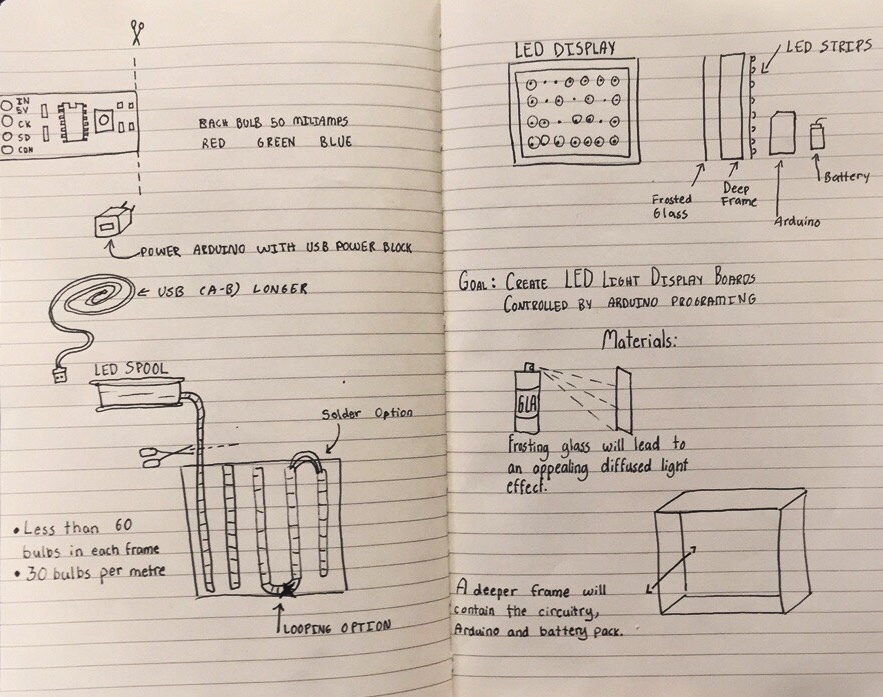 IN
5V
CK
SD
CON
BACH BULB 50 MILIAMPS
RED GREEN BLUE
POWER ARDUINO WITH USB POWER BLOCK
USB (A-B) LONGER
LED SPOOL
Solder Option
• Less than 60
bulbs in each frame
• 30 bulbs per metre
LOOPING OPTION
LED DISPLAY
LED STRIPS
Frosted
Glass
Deep
Frame
Arduino
Battery
GOAL: CREATE LED LIGHT DISPLAY BOARDS
CONTROLLED BY ARDUINO PROGRAMING
Materials:
GLA
Frosting glass will lead to
an appealing diffused light
effect.
A deeper frame will
contain the circuitry,
Arduino and battery pack.